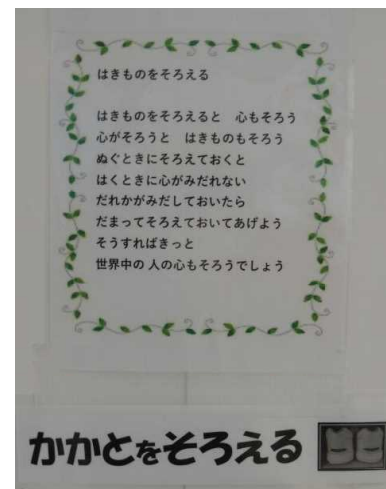 はきものをそろえる
はきものをそろえると　心もそろう
心がそろうと　はきものもそろう
ぬぐときにそろえておくと
はくときに心がみだれない
だれかがみだしておいたら
だまってそろえておいてあげよう
そうすればきっと
世界中の人の心もそろうでしょう
かかとをそろえる